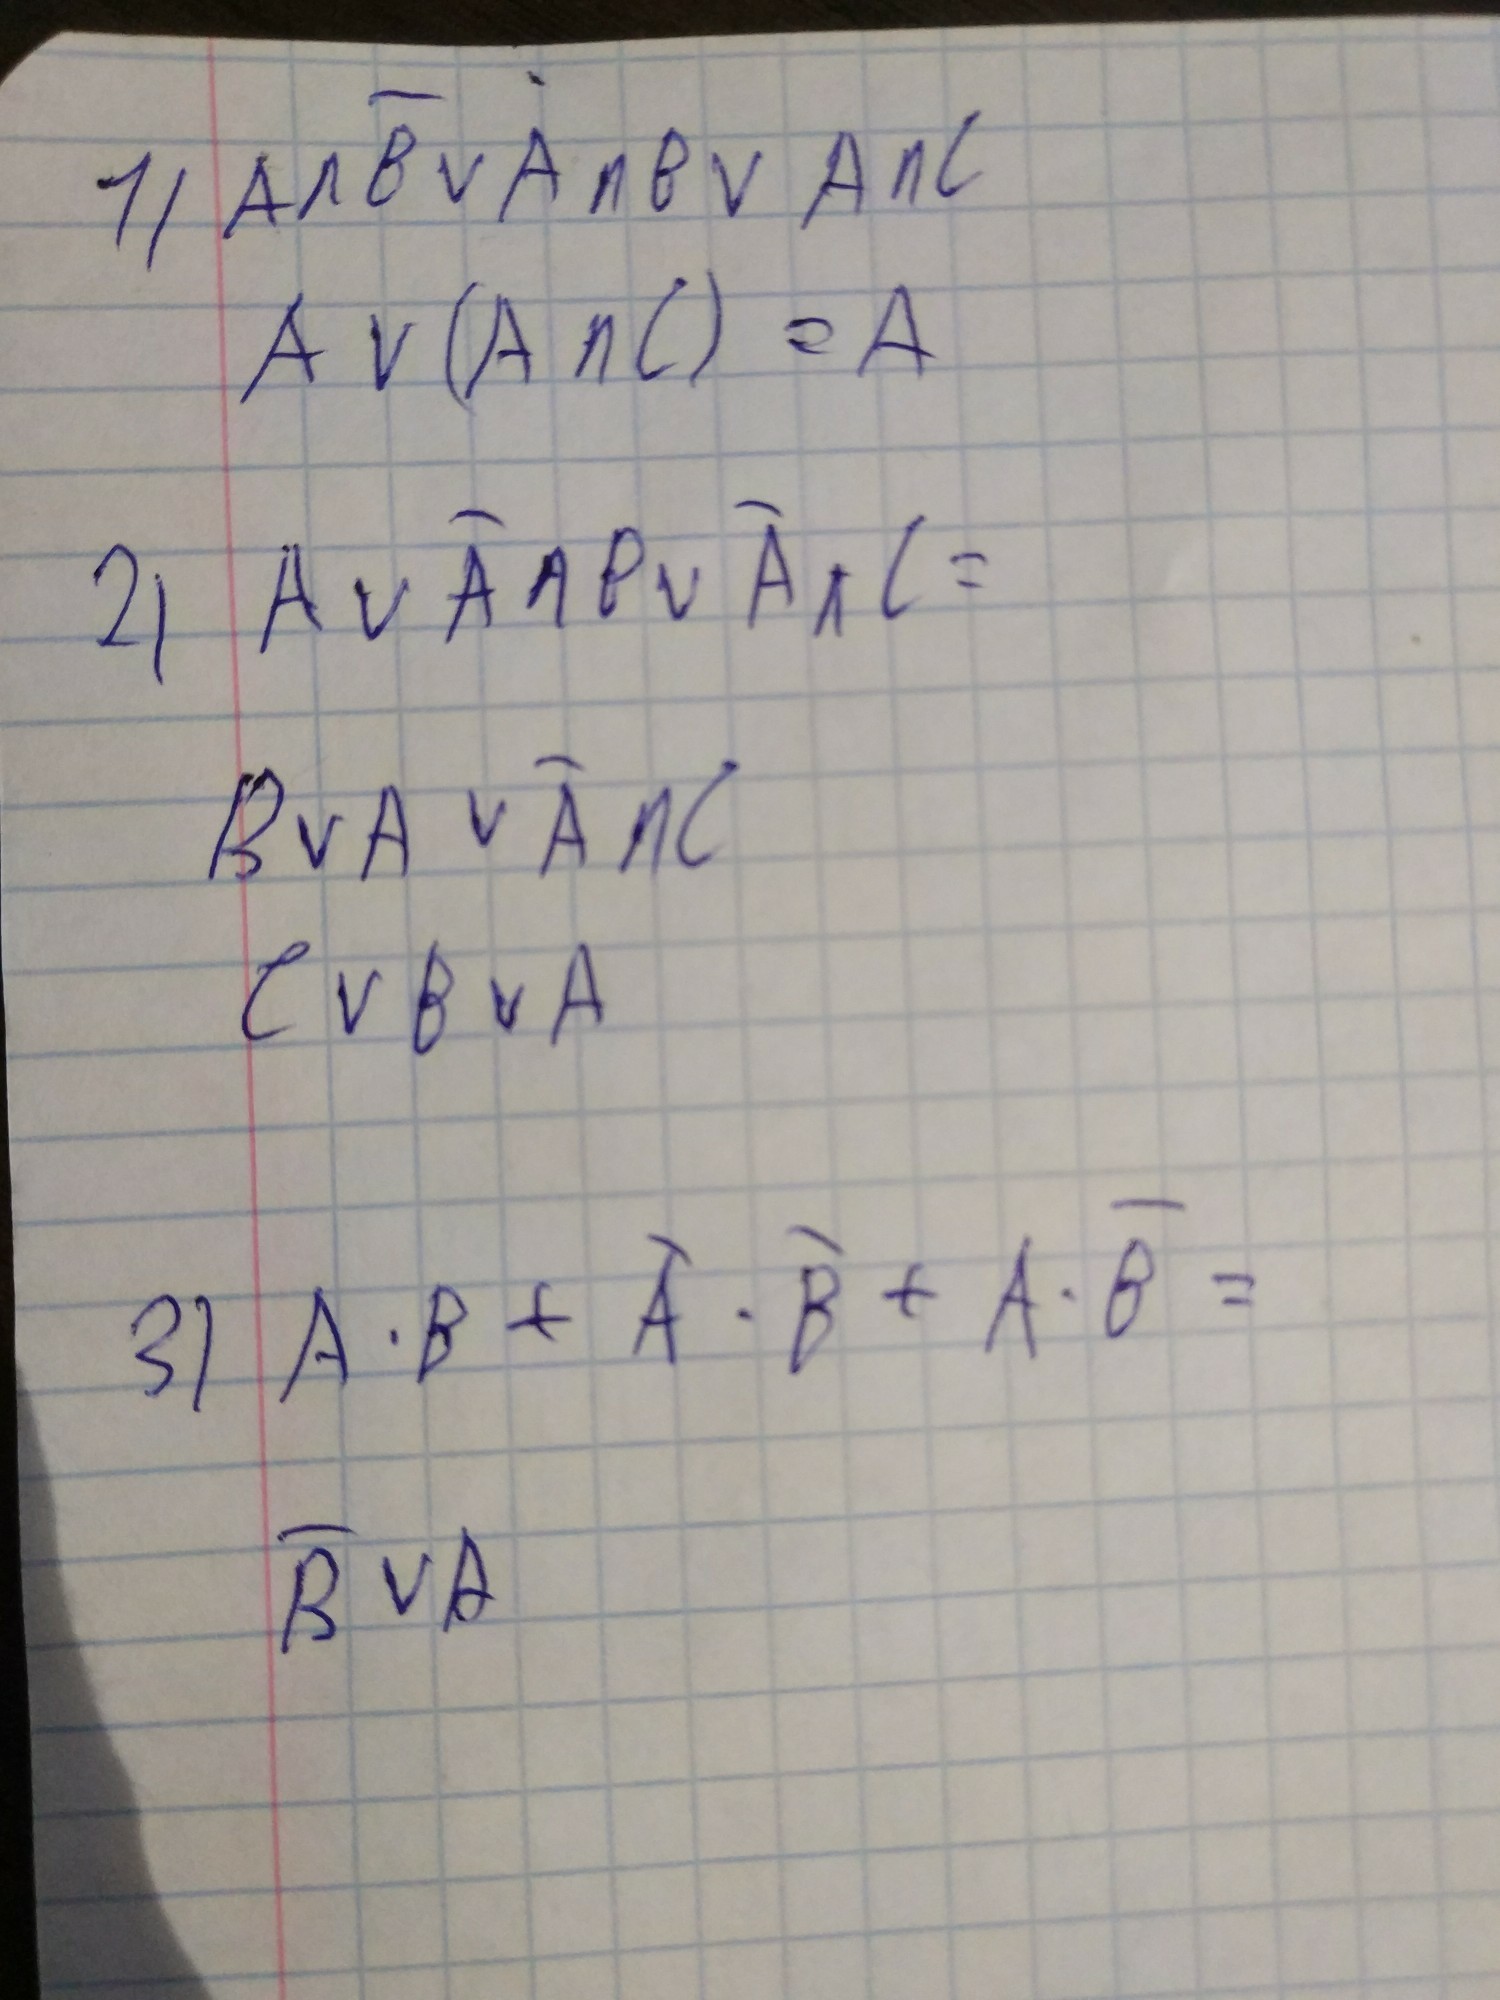 1) A∧B̅ ∨ A∧B ∨ A∧C
A ∨ (A∧C) = A
2) A ∨ A̅∧B ∨ A̅∧C =
B∨A ∨ A̅∧C
C∨B∨A
3) A·B + A̅·B̅ + A·B̅ =
B̅∨A